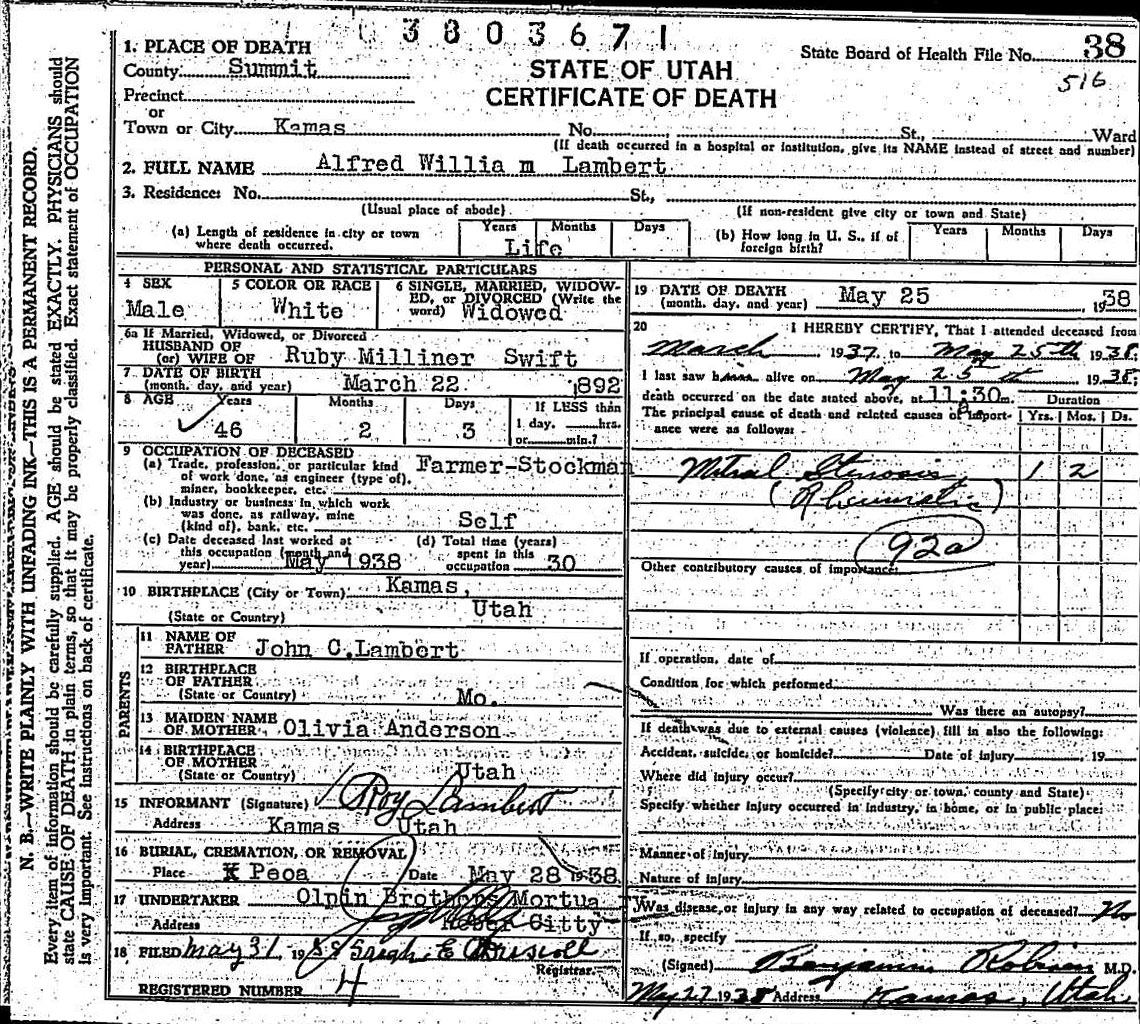 3803671
State Board of Health File No. 38
516
STATE OF UTAH
CERTIFICATE OF DEATH
1. PLACE OF DEATH
County Summit
Precinct
or
Town or City Kamas No. St., Ward
(If death occurred in a hospital or institution, give its NAME instead of street and number)
2. FULL NAME Alfred Willia m Lambert
3. Residence: No. St.,
(Usual place of abode) (If non-resident give city or town and State)
(a) Length of residence in city or town where death occurred. Years Months Days
Life
(b) How long in U. S., if of foreign birth? Years Months Days
PERSONAL AND STATISTICAL PARTICULARS
4 SEX
Male
5 COLOR OR RACE
White
6 SINGLE, MARRIED, WIDOW-
ED, or DIVORCED (Write the
word) Widowed
6a If Married, Widowed, or Divorced
HUSBAND OF
(or) WIFE OF Ruby Milliner Swift
7 DATE OF BIRTH
(month, day, and year) March 22 1892
8 AGE Years Months Days If LESS than
46 2 3 1 day, hrs.
or min.?
9 OCCUPATION OF DECEASED
(a) Trade, profession, or particular kind
of work done, as engineer (type of),
miner, bookkeeper, etc. Farmer-Stockman
(b) Industry or business in which work
was done, as railway, mine
(kind of), bank, etc. Self
(c) Date deceased last worked at
this occupation (month and
year) May 1938
(d) Total time (years)
spent in this
occupation 30
10 BIRTHPLACE (City or Town) Kamas,
(State or Country) Utah
PARENTS
11 NAME OF
FATHER John C.Lambert
12 BIRTHPLACE
OF FATHER
(State or Country) Mo.
13 MAIDEN NAME
OF MOTHER Olivia Anderson
14 BIRTHPLACE
OF MOTHER
(State or Country) Utah
15 INFORMANT (Signature) Roy Lambert
Address Kamas Utah
16 BURIAL, CREMATION, OR REMOVAL
Place Peoa Date May 28 1938
17 UNDERTAKER Olpin Brothers Mortua
Address Heber Citty
18 FILED May 31 1938 Sarah E Driscoll
Registrar.
REGISTERED NUMBER 4
19 DATE OF DEATH
(month, day, and year) May 25 1938
20 I HEREBY CERTIFY, That I attended deceased from
March 1937 to May 25th 1938
I last saw him alive on May 25th 1938
death occurred on the date stated above, at 11:30 a m.
The principal cause of death and related causes of import-
ance were as follows:
Duration
Yrs. Mos. Ds.
Mitral Stenosis 1 2
(Rheumatic)
92a
Other contributory causes of importance:
If operation, date of
Condition for which performed
Was there an autopsy?
If death was due to external causes (violence) fill in also the following:
Accident, suicide, or homicide? Date of injury , 19
Where did injury occur?
(Specify city or town, county and State)
Specify whether injury occurred in industry, in home, or in public place:
Manner of injury
Nature of injury
Was disease, or injury in any way related to occupation of deceased? No
If so, specify
(Signed) Benjamin Robison M.D.
May 27 1938 Address Kamas, Utah
N. B.—WRITE PLAINLY WITH UNFADING INK—THIS IS A PERMANENT RECORD.
Every item of information should be carefully supplied. AGE should be stated EXACTLY. PHYSICIANS should
state CAUSE OF DEATH in plain terms, so that it may be properly classified. Exact statement of OCCUPATION
is very important. See instructions on back of certificate.